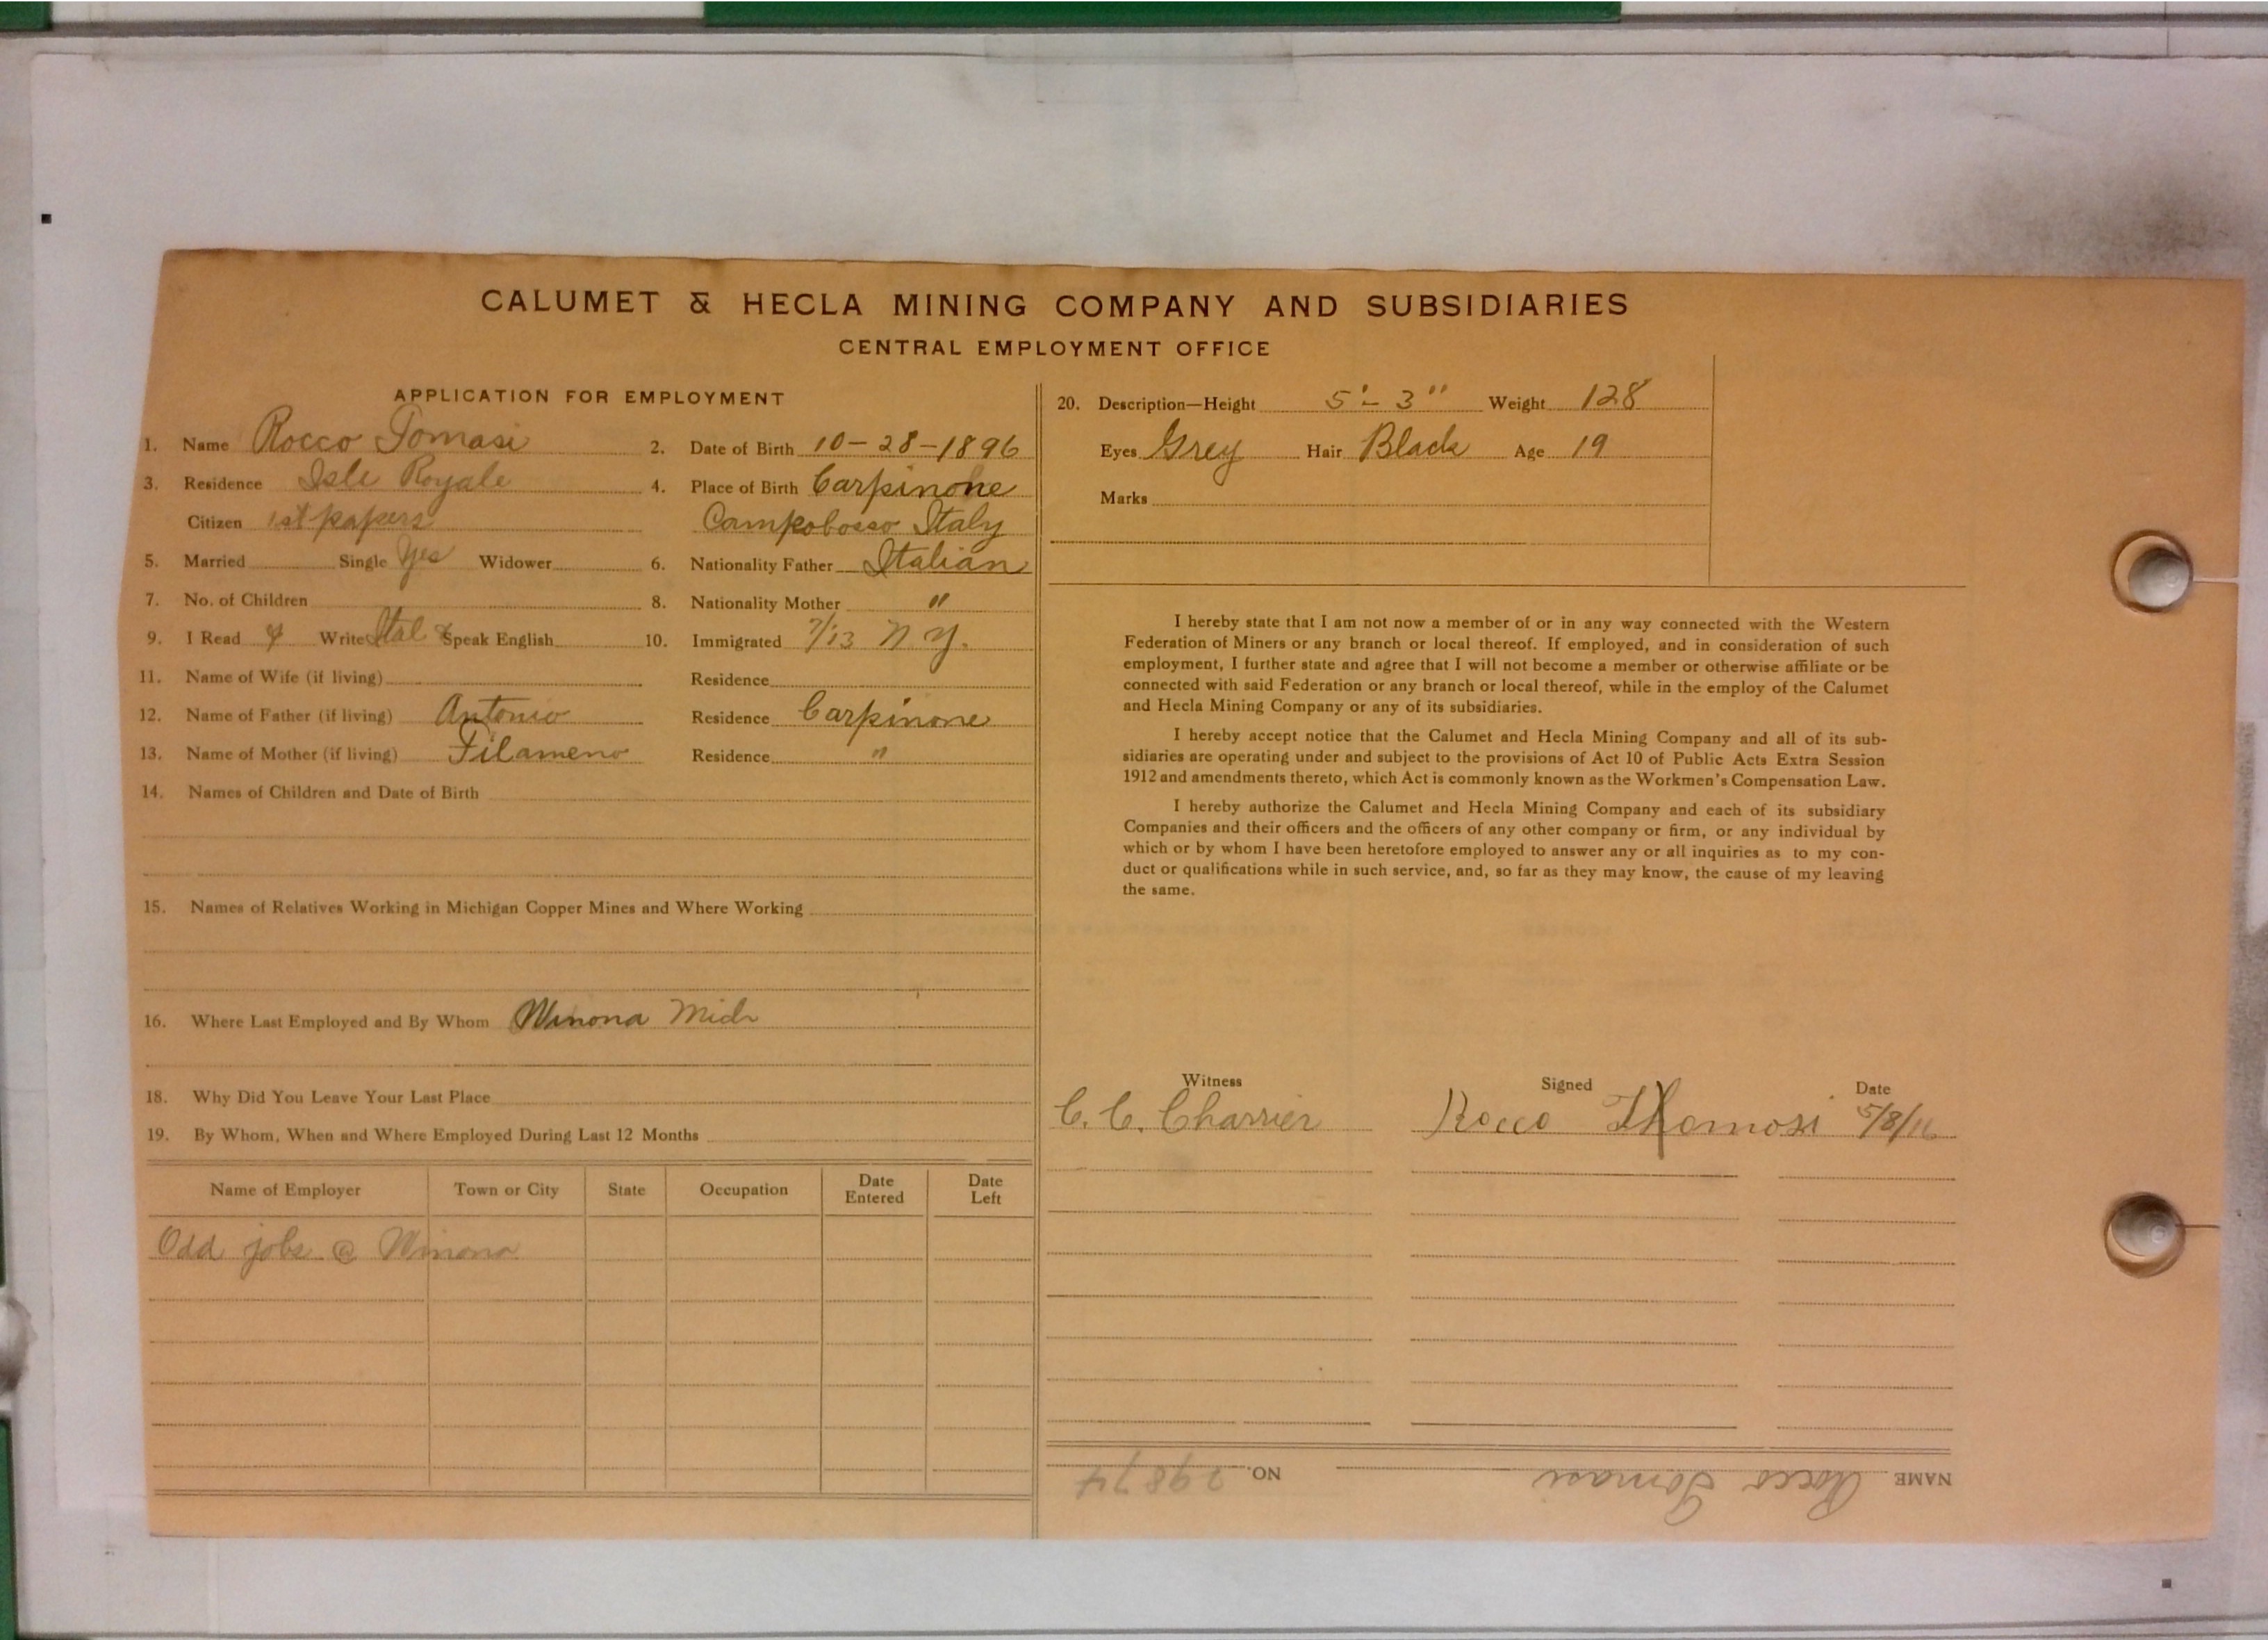 CALUMET & HECLA MINING COMPANY AND SUBSIDIARIES
CENTRAL EMPLOYMENT OFFICE
APPLICATION FOR EMPLOYMENT
1. Name Rocco Tomasi 2. Date of Birth 10-28-1896
3. Residence Isle Royale 4. Place of Birth Carpinone
Citizen 1st papers Campobosso Italy
5. Married Single Yes Widower 6. Nationality Father Italian
7. No. of Children 8. Nationality Mother "
9. I Read & Write Ital & Speak English 10. Immigrated 7/13 N.Y.
11. Name of Wife (if living) Residence
12. Name of Father (if living) Antonio Residence Carpinone
13. Name of Mother (if living) Filameno Residence "
14. Names of Children and Date of Birth
15. Names of Relatives Working in Michigan Copper Mines and Where Working
16. Where Last Employed and By Whom Winona Mich
18. Why Did You Leave Your Last Place
19. By Whom, When and Where Employed During Last 12 Months
Name of Employer Town or City State Occupation Date Entered Date Left
Odd jobs @ Winona
20. Description—Height 5'-3" Weight 128
Eyes Grey Hair Black Age 19
Marks
I hereby state that I am not now a member of or in any way connected with the Western
Federation of Miners or any branch or local thereof. If employed, and in consideration of such
employment, I further state and agree that I will not become a member or otherwise affiliate or be
connected with said Federation or any branch or local thereof, while in the employ of the Calumet
and Hecla Mining Company or any of its subsidiaries.
I hereby accept notice that the Calumet and Hecla Mining Company and all of its sub-
sidiaries are operating under and subject to the provisions of Act 10 of Public Acts Extra Session
1912 and amendments thereto, which Act is commonly known as the Workmen's Compensation Law.
I hereby authorize the Calumet and Hecla Mining Company and each of its subsidiary
Companies and their officers and the officers of any other company or firm, or any individual by
which or by whom I have been heretofore employed to answer any or all inquiries as to my con-
duct or qualifications while in such service, and, so far as they may know, the cause of my leaving
the same.
Witness Signed Date
C. C. Charrier Rocco Thomosi 5/8/16
NAME Rocco Tomasi NO. 29874